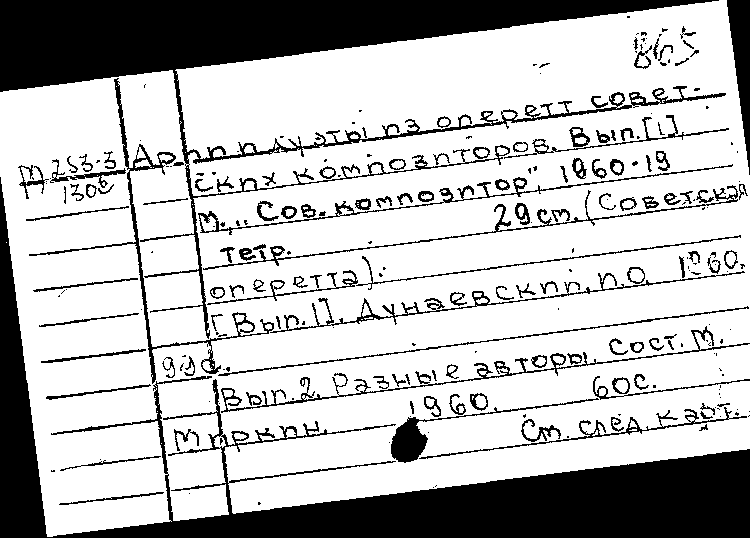 865
М 253-3 Арии и дуэты из оперетт совет-
1302 ских композиторов. Вып.[1],
М., „Сов. композитор", 1960-19
тетр. 29см. (Советская
оперетта).
[Вып.1]. Дунаевский, И.О. 1960.
99с.
Вып.2. Разные авторы. Сост. М.
Миркин. 1960. 60с.
См. след. карт.